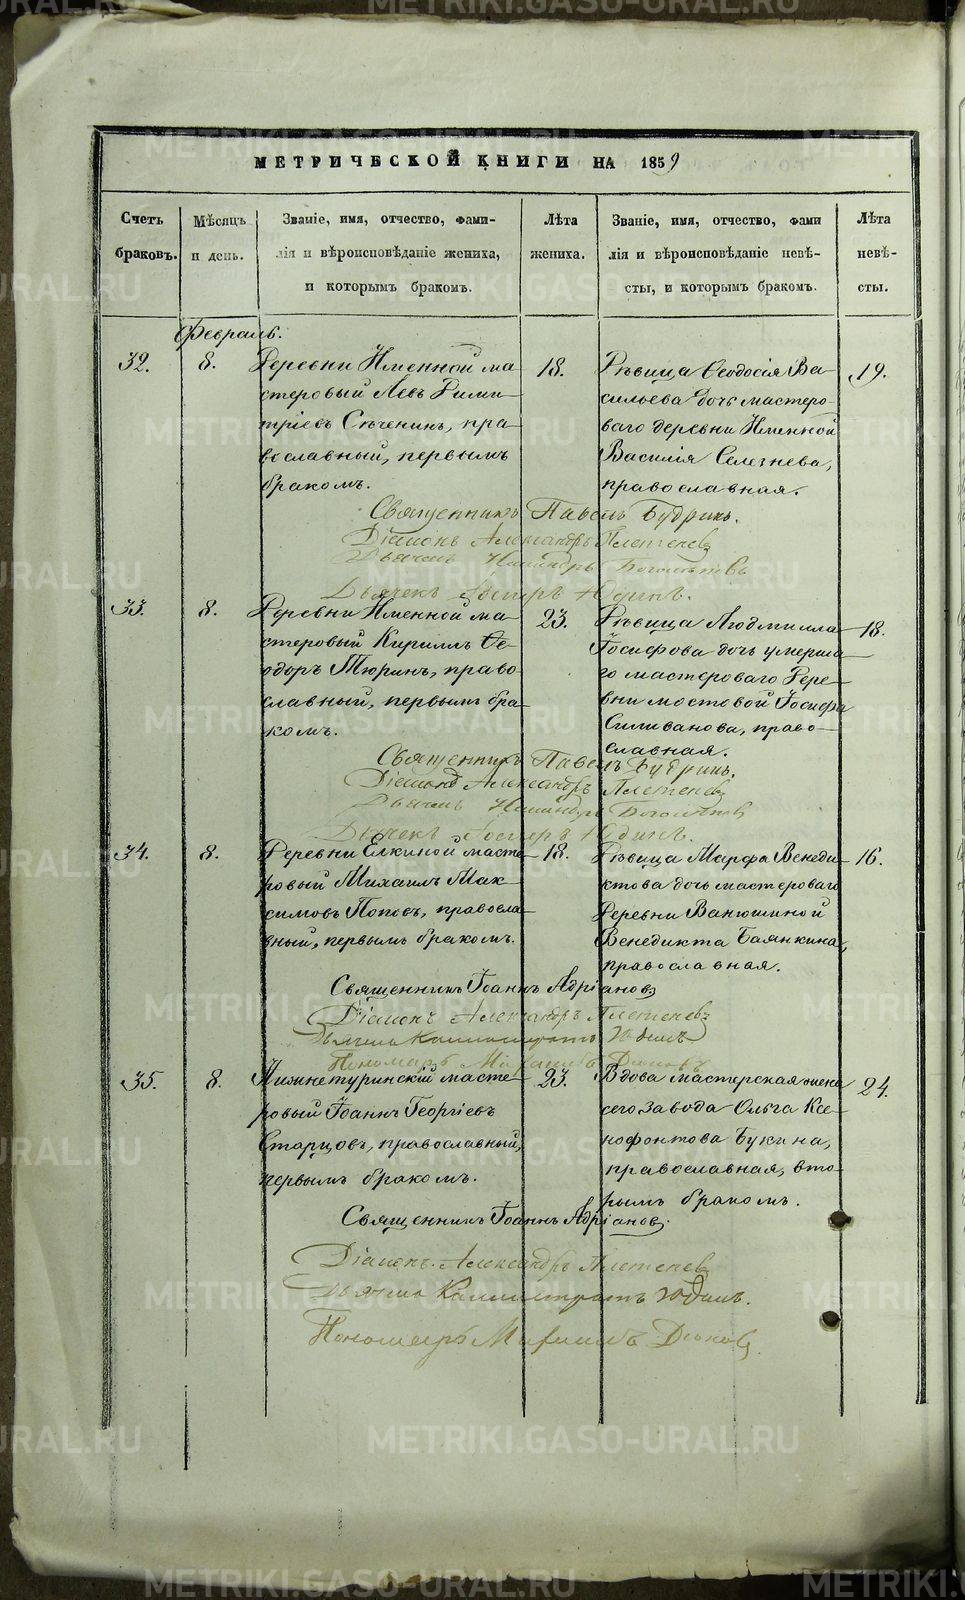 МЕТРИЧЕСКОЙ КНИГИ НА 1859
Счетъ браковъ.
Мѣсяцъ и день.
Званіе, имя, отчество, фами-
лія и вѣроисповѣданіе жениха,
и которымъ бракомъ.
Лѣта жениха.
Званіе, имя, отчество, фами
лія и вѣроисповѣданіе невѣ-
сты, и которымъ бракомъ.
Лѣта невѣ-
сты.
Февраль.
32.
8.
Деревни Именной ма
стеровый Левъ Дими
тріевъ Сѣченинъ, пра
вославный, первымъ
бракомъ.
18.
Дѣвица Ѳеодосія Ва-
сильева дочь мастеро-
ваго деревни Именной
Василія Селезнева,
православная.
19.
Священникъ Павелъ Будринъ.
Діаконъ Александръ Плетеневъ
Дьячекъ Юдинъ.
33.
8.
Деревни Именной ма-
стеровый Кирилъ Ѳе-
одоръ Тюринъ, право
славный, первымъ бра
комъ.
23.
Дѣвица Людмилла
Іосифова дочь умерша
го мастероваго Дере-
вни мостовой Іосифа
Силиванова, право-
славная.
18.
Священникъ Павелъ Будринъ.
Діаконъ Александръ Плетеневъ
Дьячекъ Юдинъ.
34.
8.
Деревни Елкиной масте
ровый Михаилъ Мак
симовъ Поповъ, правосла-
вный, первымъ бракомъ.
18.
Дѣвица Марфа Венеди
ктова дочь мастероваго
Деревни Ванюшиной
Венедикта Баянкина,
православная.
16.
Священникъ Іоаннъ Адріановъ
Діаконъ Александръ Плетеневъ
Каллистратъ Юдинъ
Пономарь
35.
8.
Нижнетуринскій масте-
ровый Іоаннъ Георгіевъ
Старцовъ, православный,
первымъ бракомъ.
23.
Вдова мастерская жена
сего завода Ольга Ксе-
нофонтова Букина,
православная, вто-
рымъ бракомъ.
24.
Священникъ Іоаннъ Адріановъ.
Діаконъ Александръ Плетеневъ
Каллистратъ Юдинъ.
Пономарь
METRIKI.GASO-URAL.RU